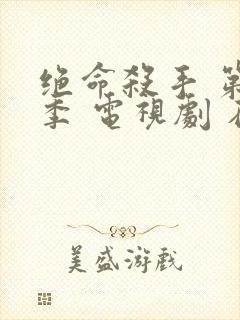 绝命殺手 第
季 電視劇
美盛游戏